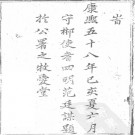 旹
康熙五十八年己亥夏六月
守郴使者四明范廷謀題
於公署之牧愛堂